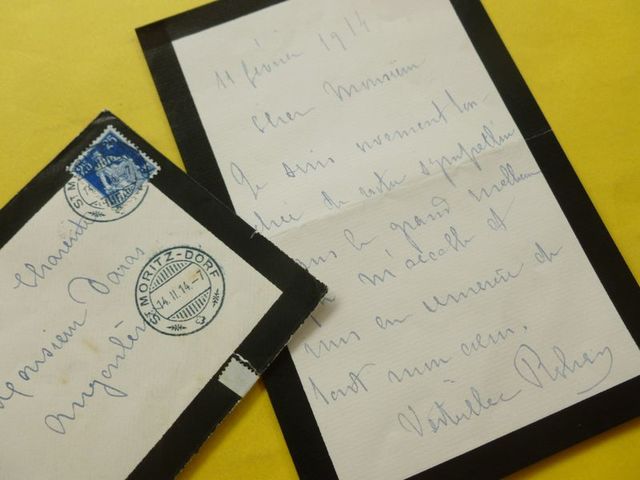 11 février 1914
Cher Monsieur
Je suis vivement tou-
chée de votre sympathie
dans le grand malheur
qui m'accable et
vous en remercie de
tout mon cœur.
Rohan
25 25
ST. MORITZ-DORF
14.II.14.-7
Charente
Monsieur Daras
Angoulême